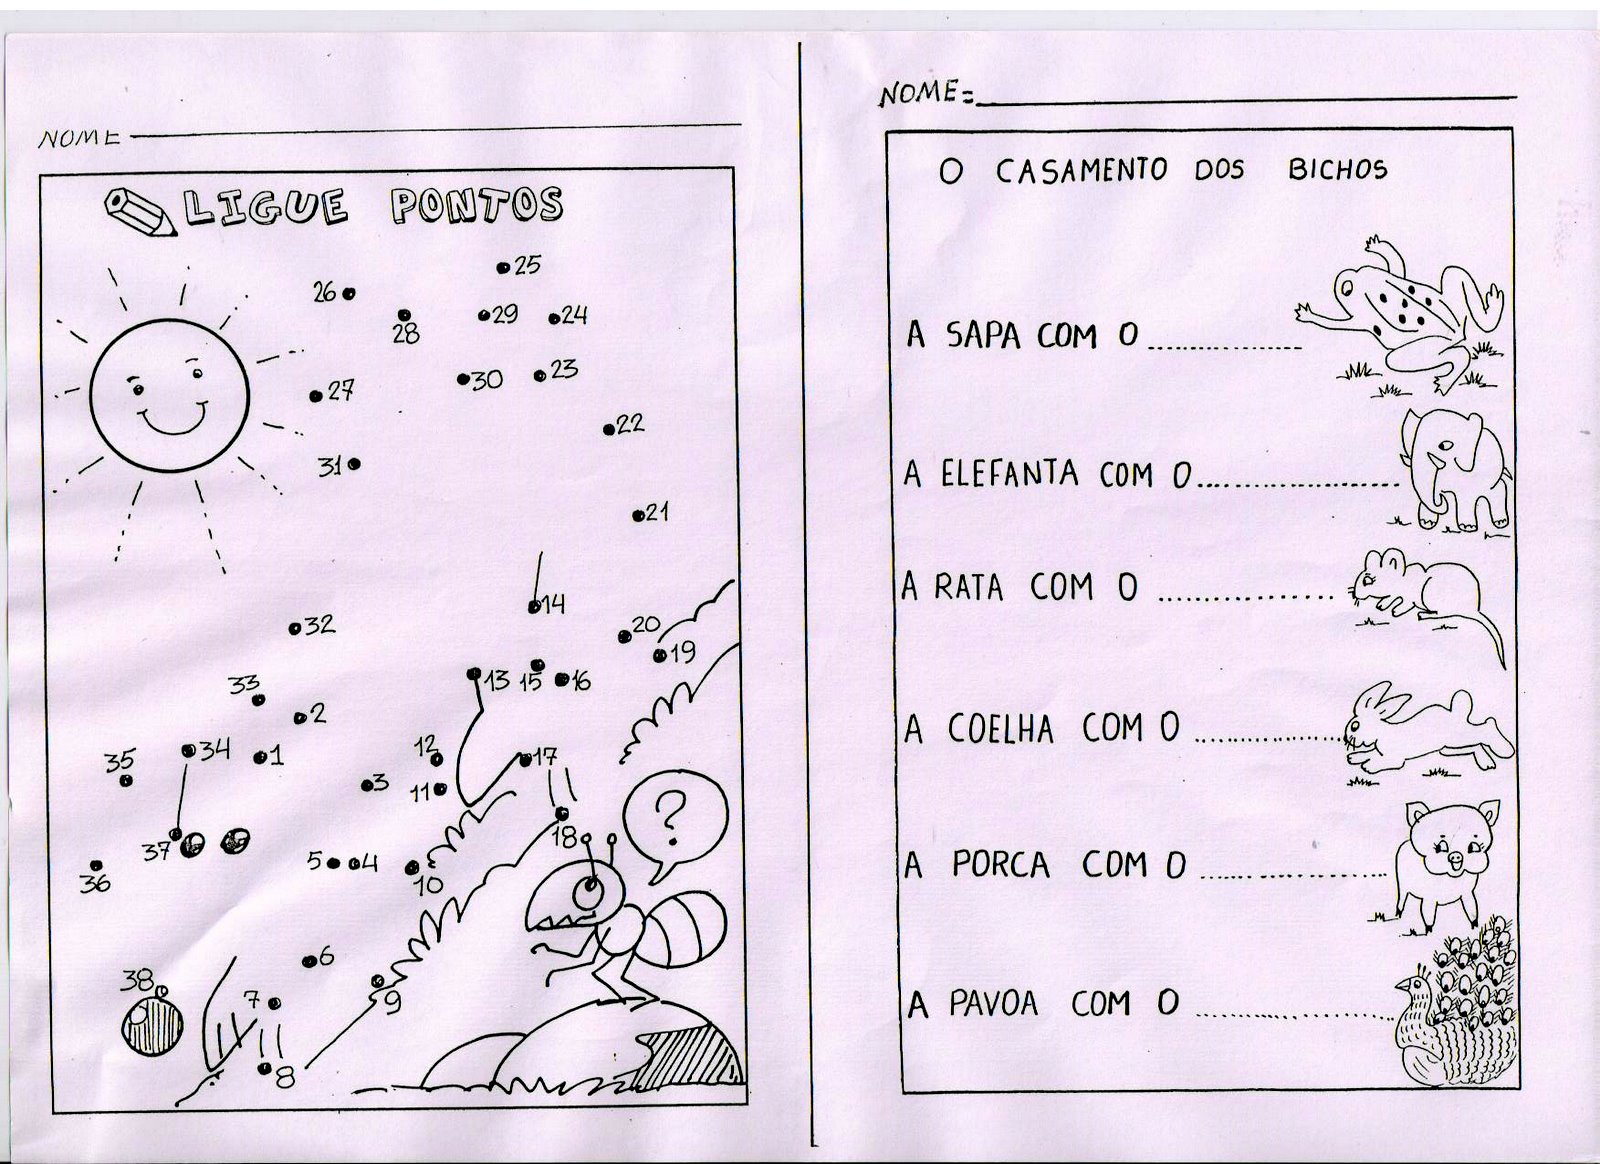 NOME
LIGUE PONTOS
25
26
28
29
24
27
30
23
22
31
21
14
32
20
19
13
15
16
33
2
34
1
35
12
17
3
11
18
?
37
5
4
10
36
6
38
7
9
8
NOME=
O CASAMENTO DOS BICHOS
A SAPA COM O ..............
A ELEFANTA COM O ....................
A RATA COM O ................
A COELHA COM O ...............
A PORCA COM O ..................
A PAVOA COM O ....................